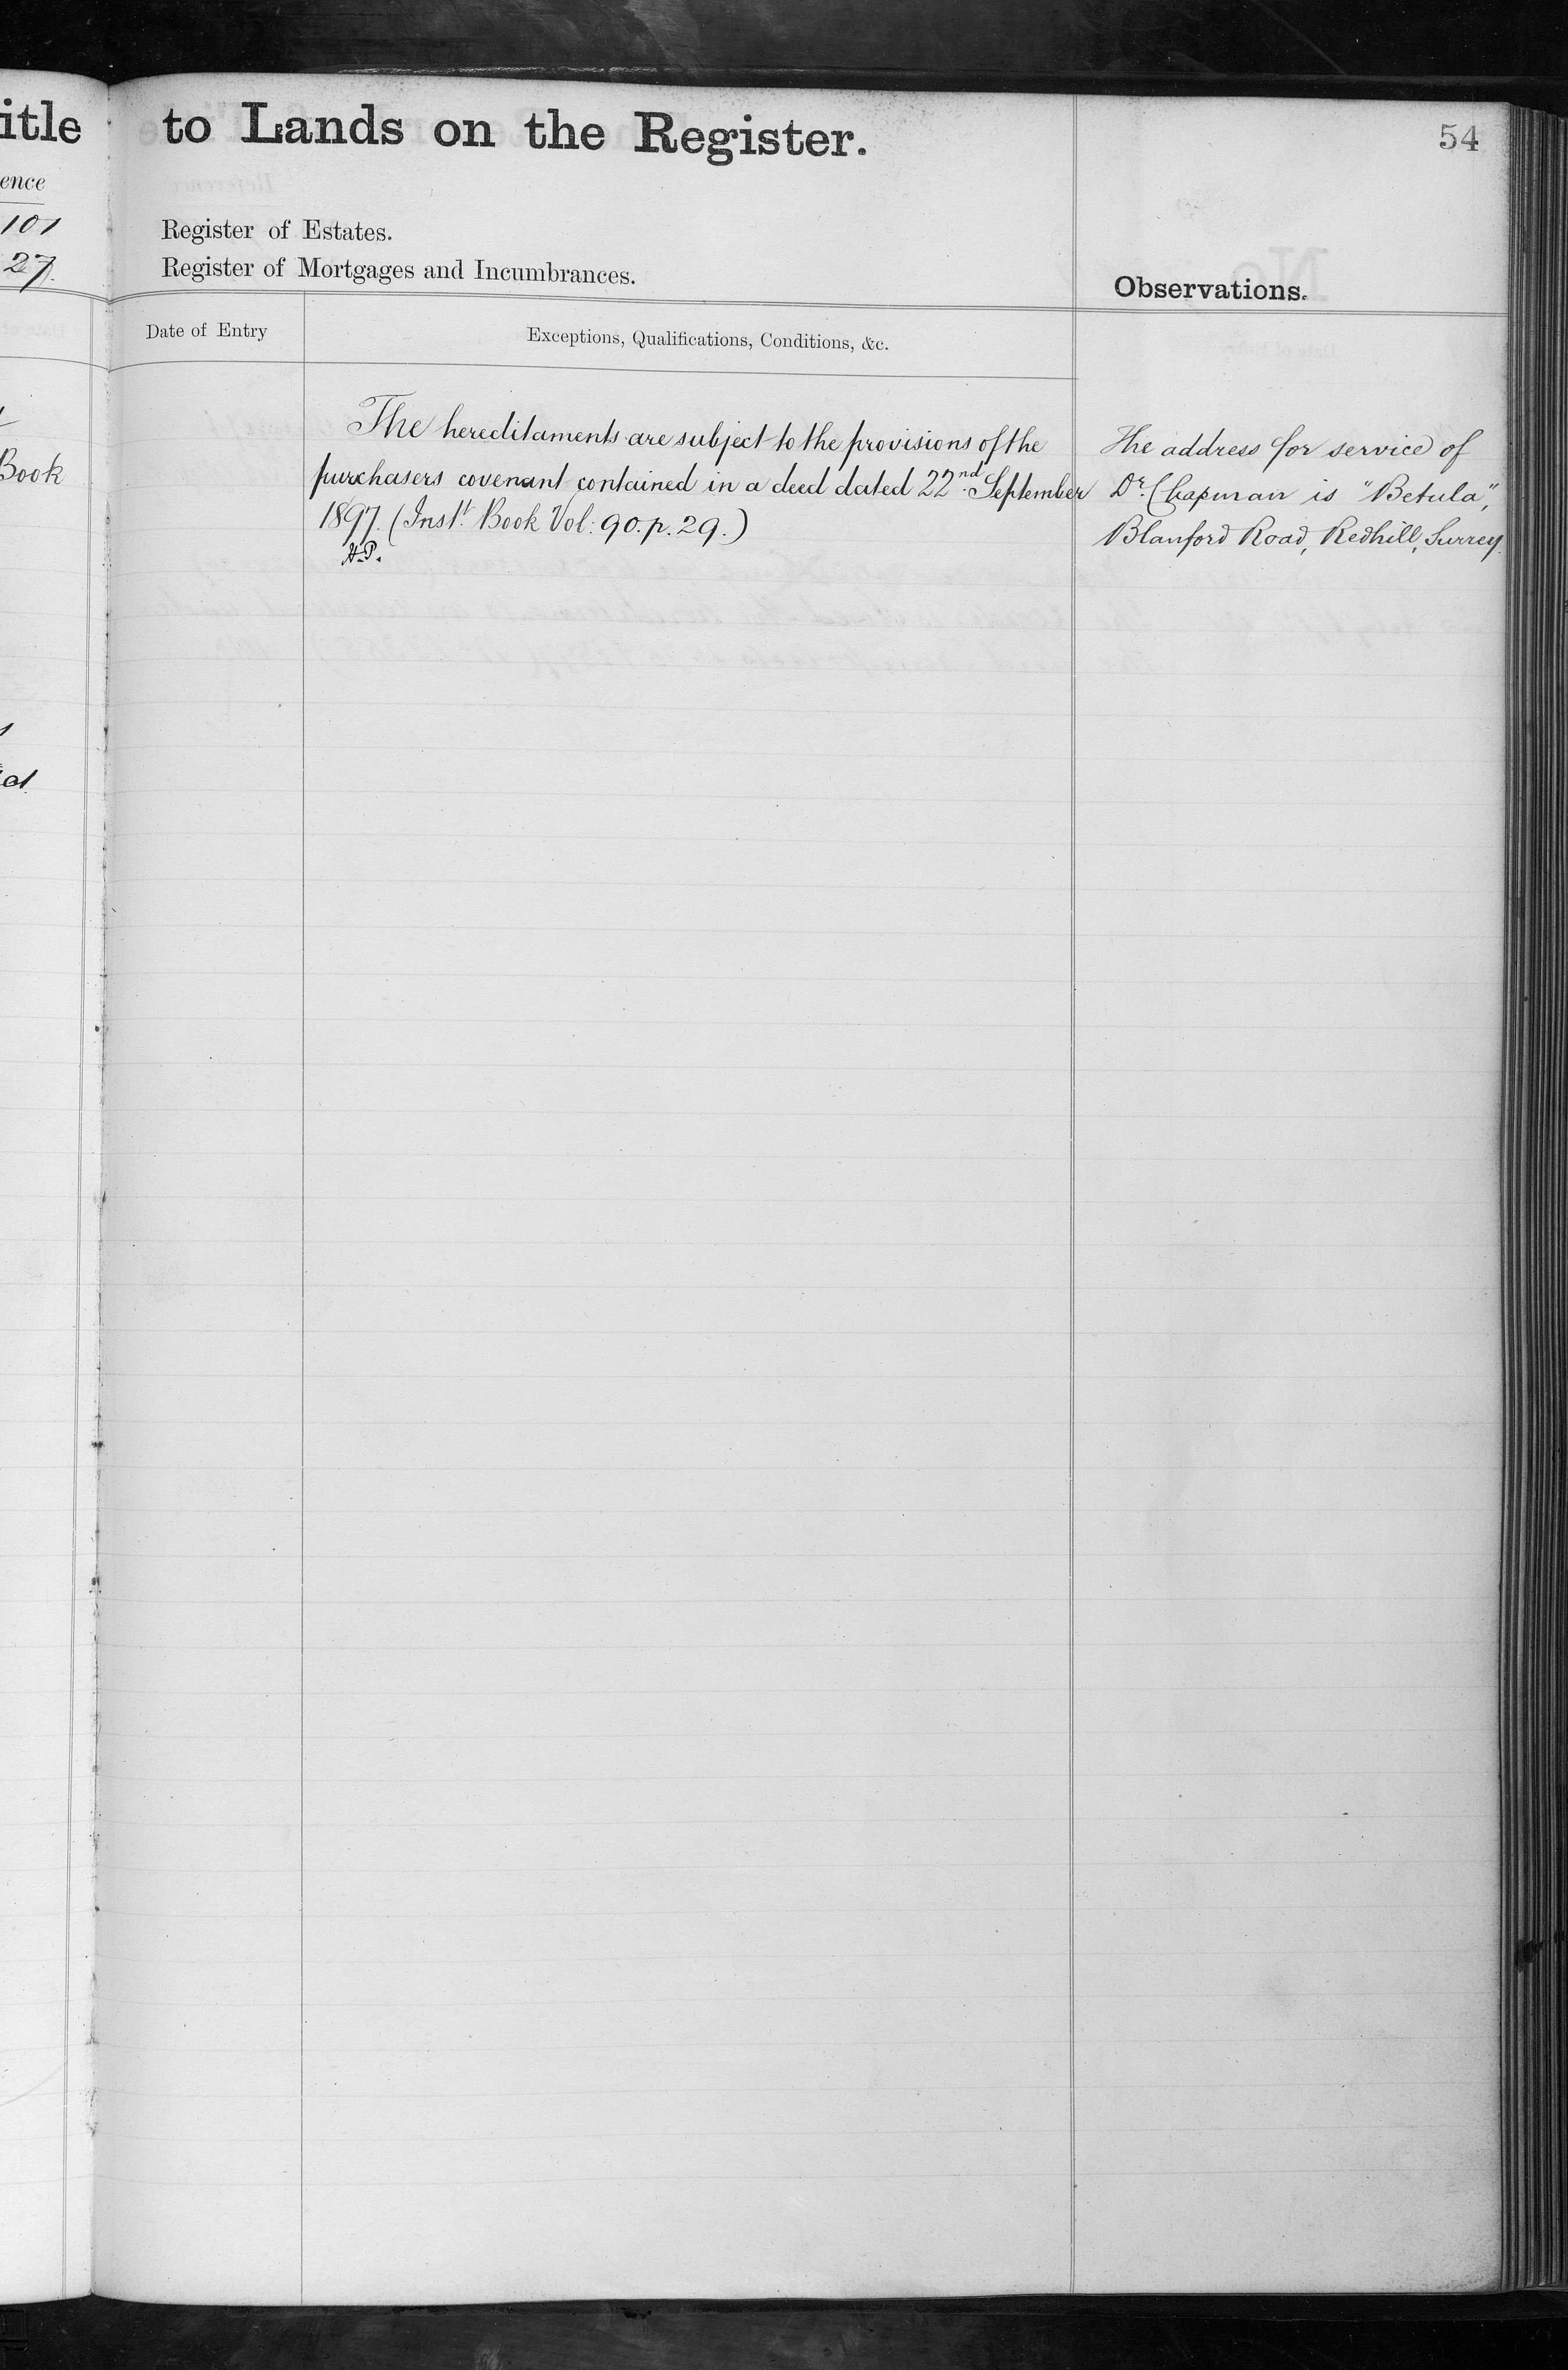 itle
ence
101
27.
Book
to Lands on the Register.
54
Register of Estates.
Register of Mortgages and Incumbrances.
Observations.
Date of Entry
Exceptions, Qualifications, Conditions, &c.
The hereditaments are subject to the provisions of the
purchasers covenant contained in a deed dated 22nd. September
1897. (Inst. Book Vol: 90. p. 29.)
H.P.
The address for service of
Dr. Chapman is "Betula",
Blanford Road, Redhill, Surrey.